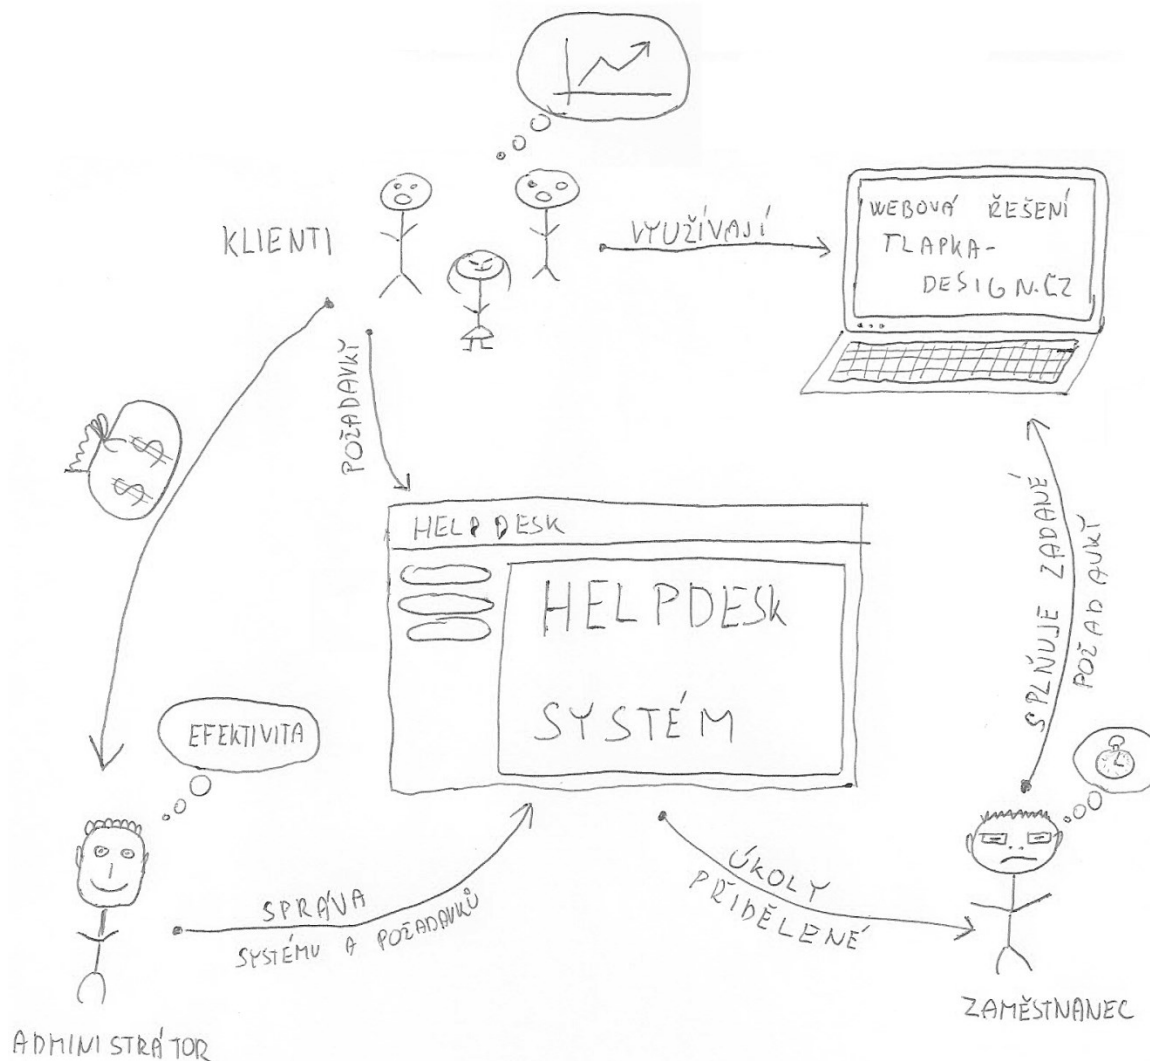 KLIENTI
VYUŽÍVAJÍ
WEBOVÁ ŘEŠENÍ
TLAPKA-
DESIGN.CZ
POŽADAVKY
$
$
HELPDESK
HELPDESK
SYSTÉM
SPLŇUJE ZADANÉ
POŽADAVKY
EFEKTIVITA
SPRÁVA
SYSTÉMU A POŽADAVKŮ
ÚKOLY
PŘIDĚLENÉ
ZAMĚSTNANEC
ADMINISTRÁTOR